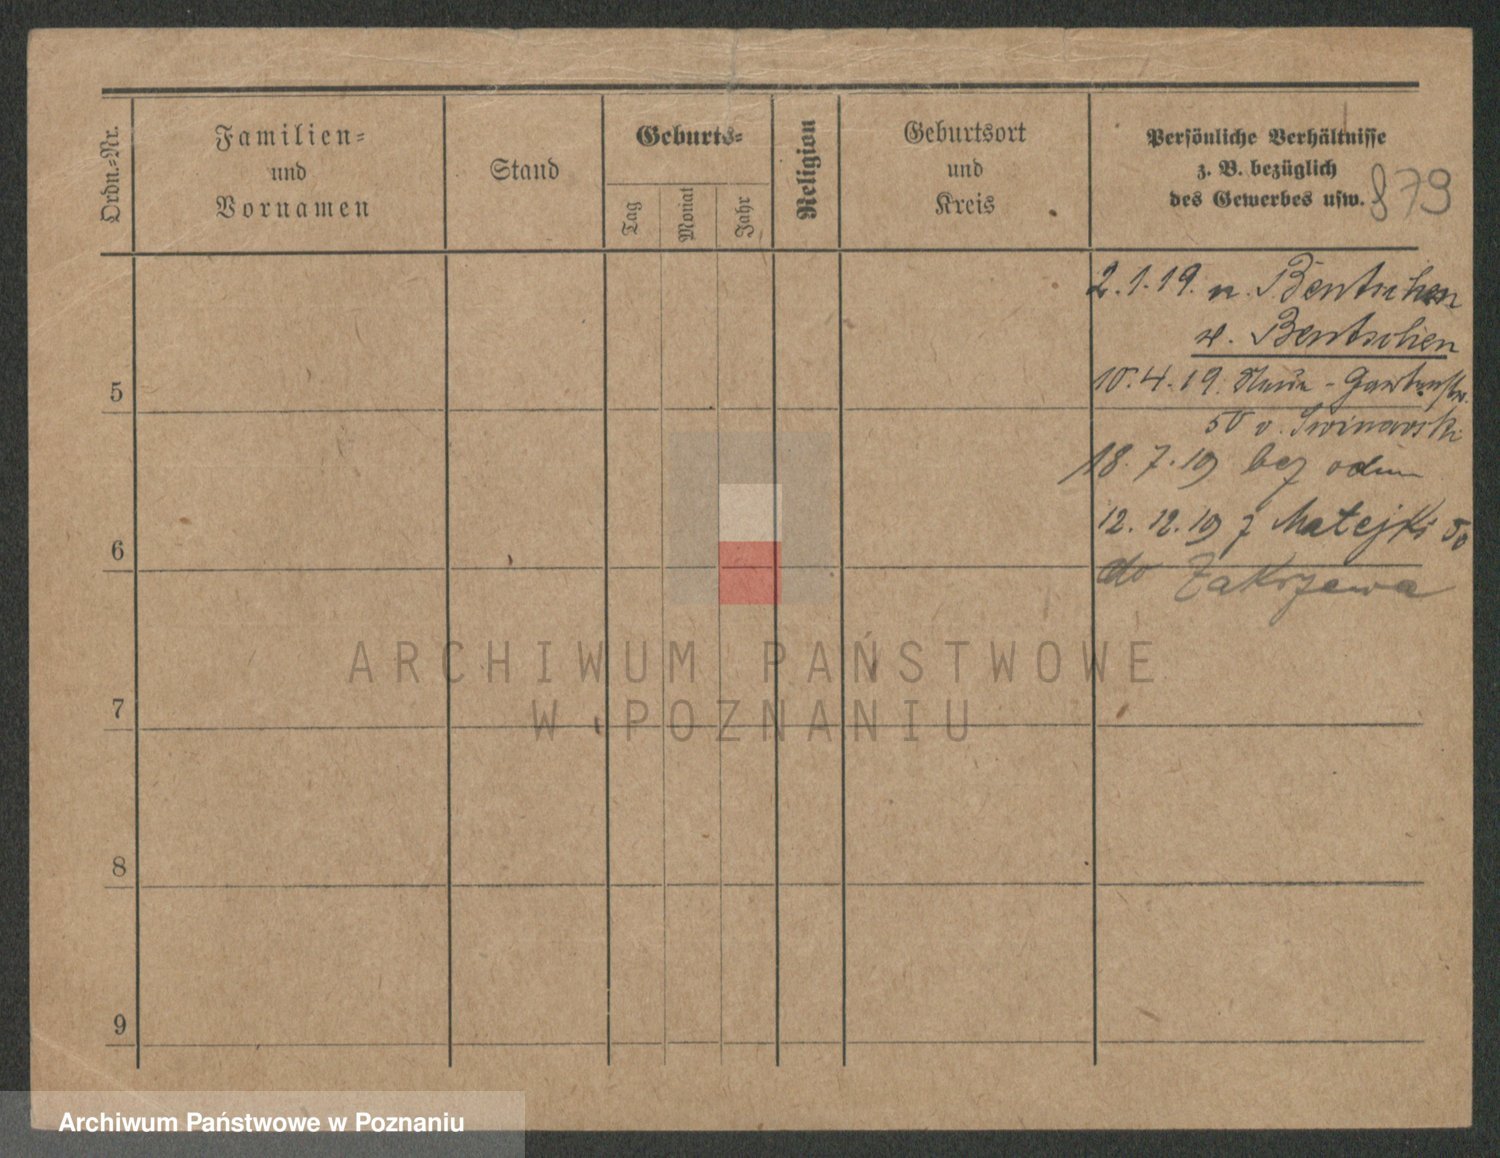 Ordn.-Nr.
Familien-
und
Vornamen
Stand
Geburts-
Tag
Monat
Jahr
Religion
Geburtsort
und
Kreis
Persönliche Verhältnisse
z. B. bezüglich
des Gewerbes usw.
879
2.1.19. n. Bentschen
v. Bentschen
10.4.19.
50 v.
18.7.19 bez odm
12.12.19 z Matejki 50
do Zakrzewa
5
6
7
8
9
ARCHIWUM PAŃSTWOWE
W POZNANIU
Archiwum Państwowe w Poznaniu